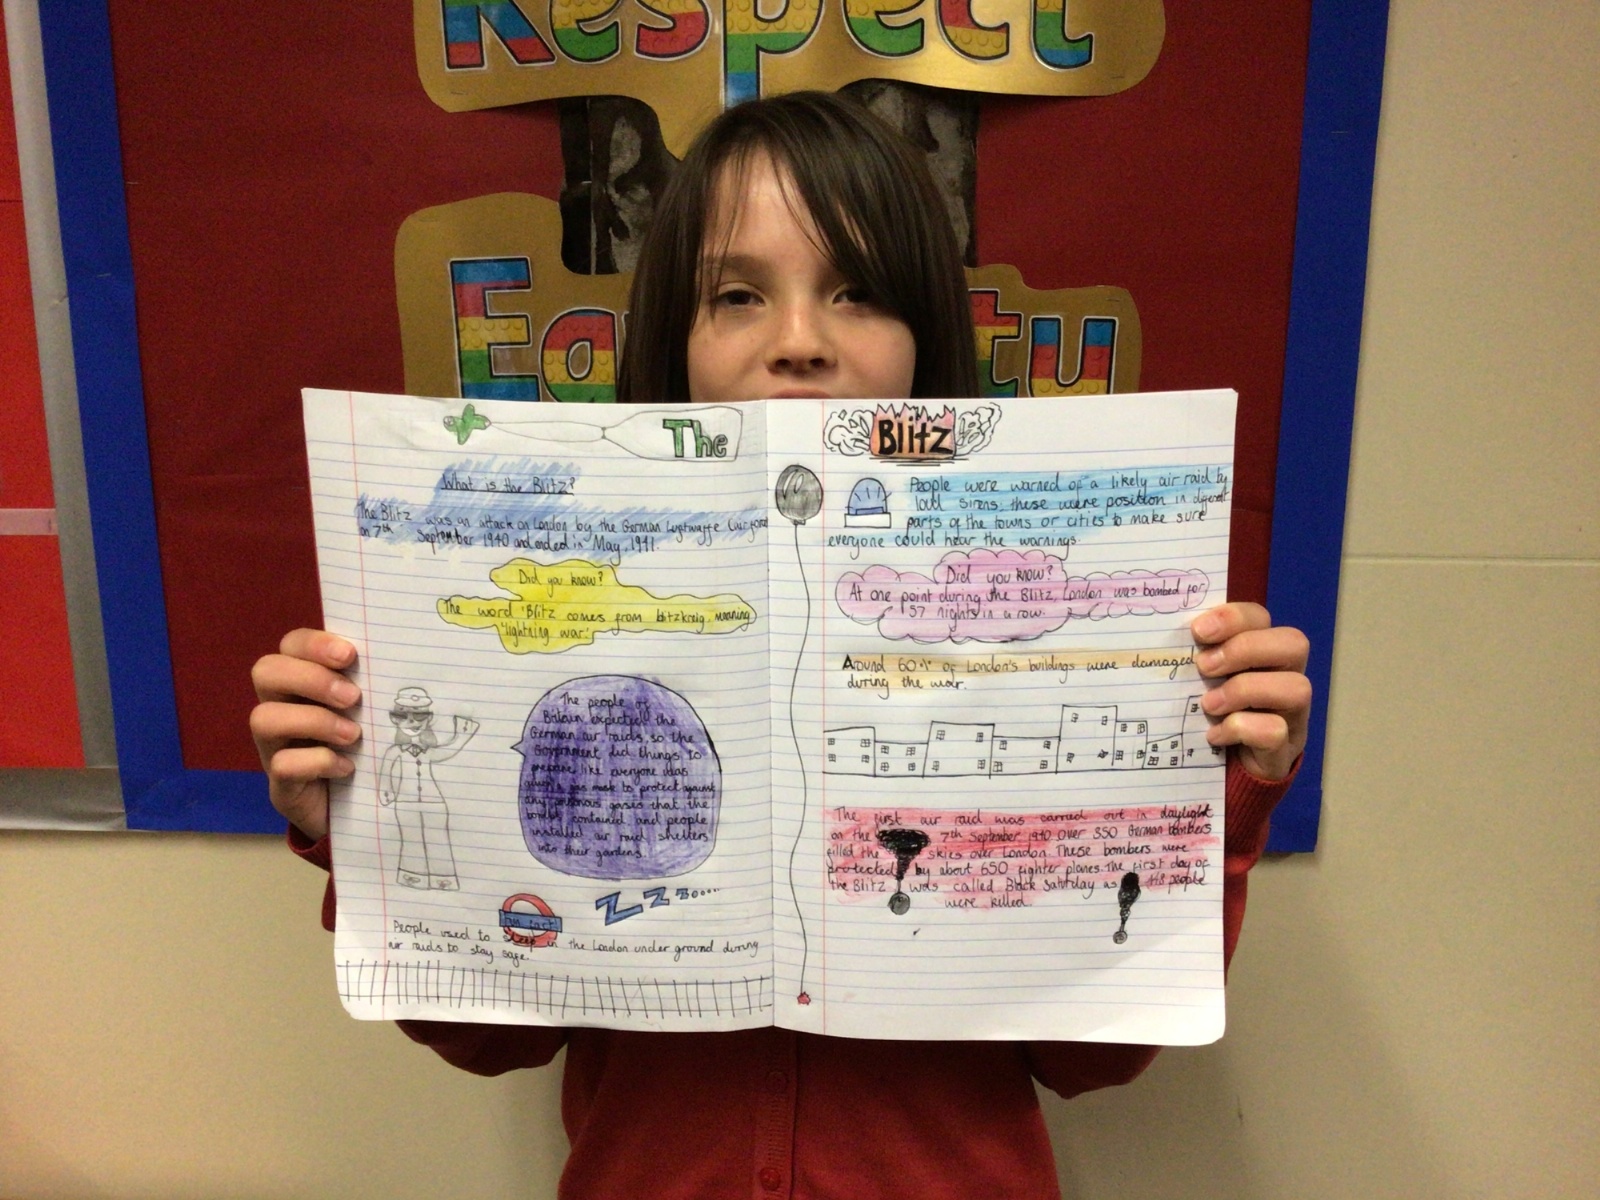 Respect
Equality
The
What is the Blitz?
The Blitz was an attack on London by the German Luftwaffe (air force)
on 7th September 1940 and ended in May, 1941.
Did you know?
The word 'Blitz comes from blitzkreig, meaning
'lightning war'.
The people of
Britain expected the
German air raids, so the
Government did things to
prepare like everyone was
given a gas mask to protect against
any poisonous gases that the
bombs contained and people
installed air raid shelters
into their gardens.
ZZz.....
fun fact
People used to sleep in the London under ground during
air raids to stay safe.
Blitz
People were warned of a likely air raid by
loud sirens, these were position in different
parts of the towns or cities to make sure
everyone could hear the warnings.
Did you know?
At one point during the Blitz, London was bombed for
57 nights in a row.
Around 60% of London's buildings were damaged
during the war.
The first air raid was carried out in daylight
on the 7th September 1940 Over 350 German bombers
filled the skies over London. These bombers were
protected by about 650 fighter planes. The first day of
the Blitz was called Black Saturday as people
were killed.